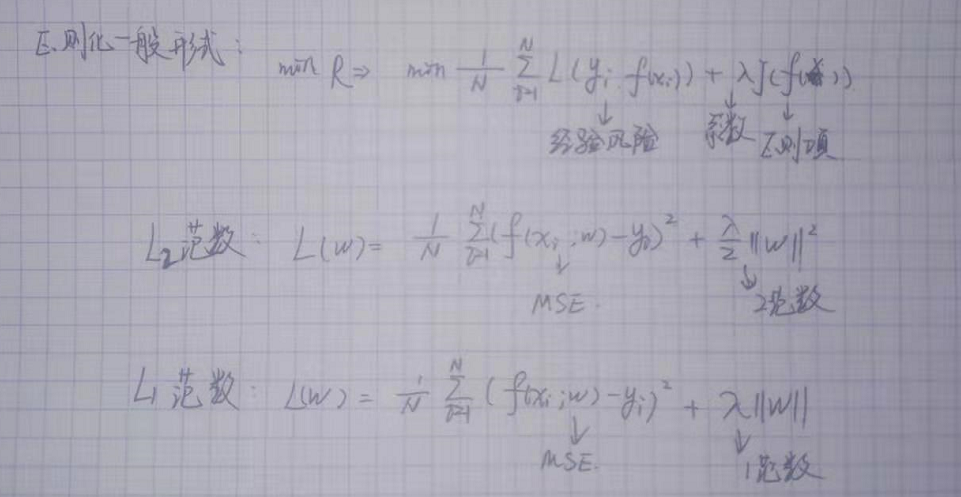 正则化一般形式:
min R ⇒ min 1/N ∑_{i=1}^{N} L(y_i, f(x_i)) + λJ(f(x))
↓经验风险 ↓系数 ↓正则项
L₂范数: L(w) = 1/N ∑_{i=1}^{N} (f(x_i;w) - y_i)² + λ/2 ||w||²
↓MSE. ↓2范数
L₁范数: L(w) = 1/N ∑_{i=1}^{N} (f(x_i;w) - y_i)² + λ||w||
↓MSE. ↓1范数